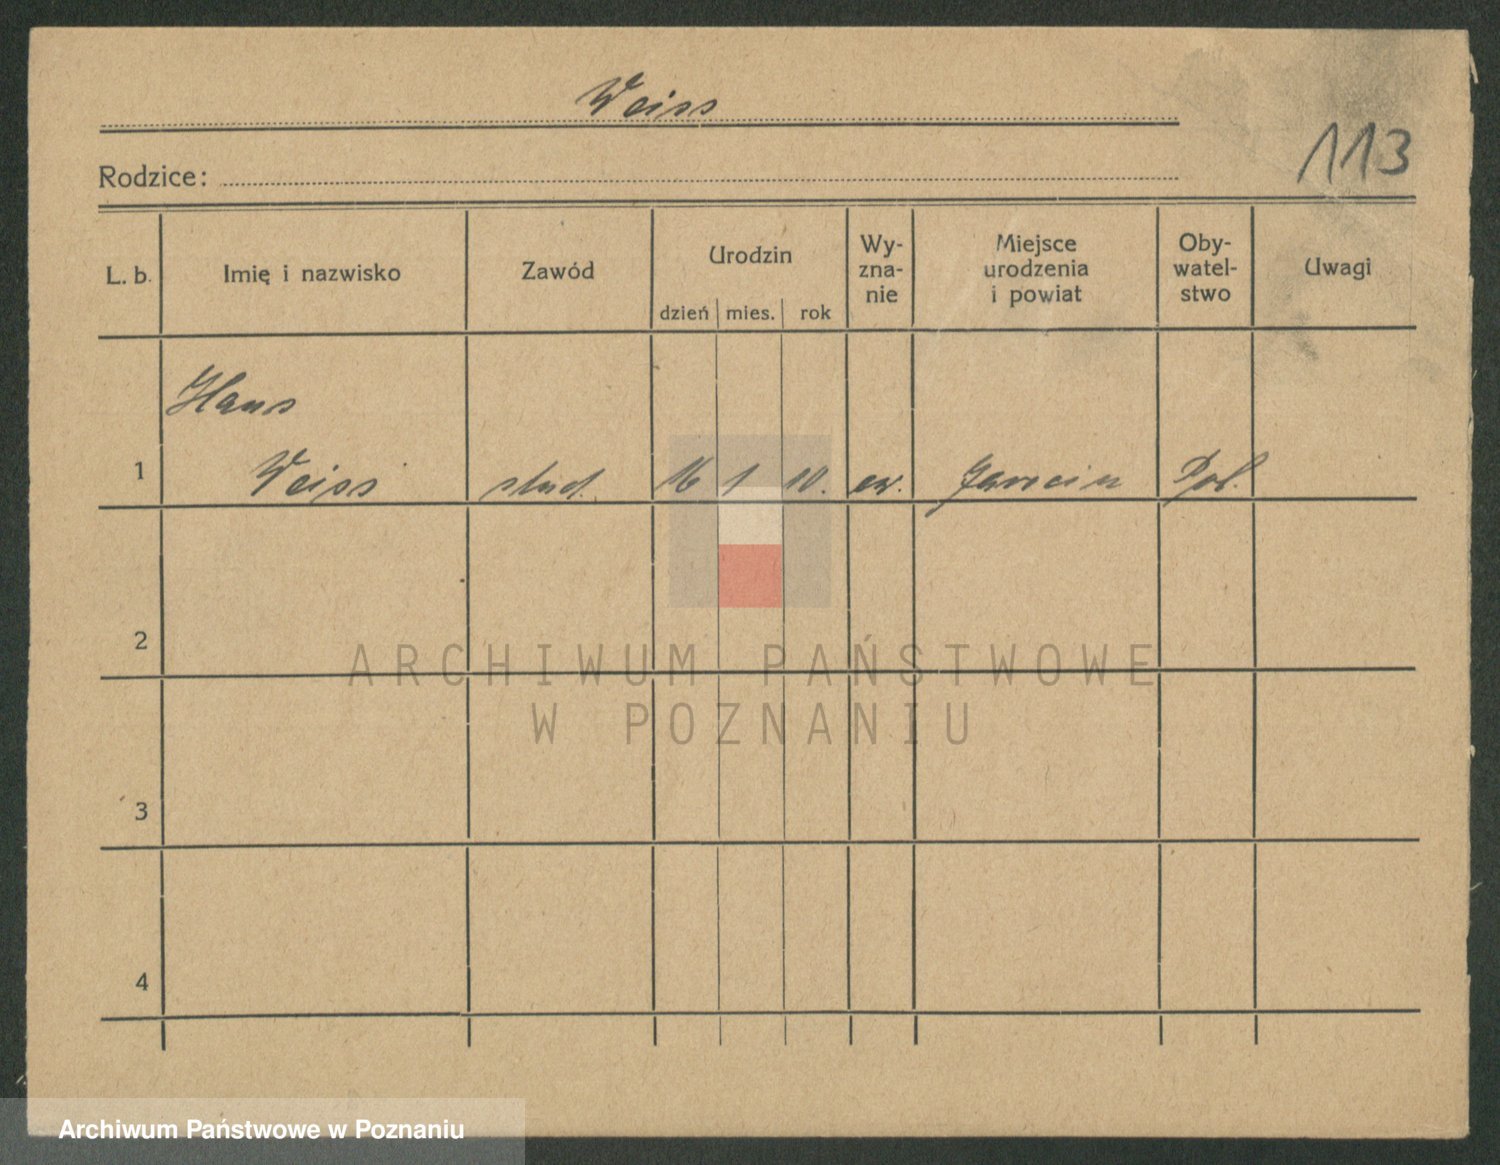 Weiss
113
Rodzice:
L. b. Imię i nazwisko Zawód Urodzin dzień mies. rok Wy-zna-nie Miejsce urodzenia i powiat Oby-watel-stwo Uwagi
Hans
1 Weiss stud. 16 1 10. ew. Jarocin Pol.
2
ARCHIWUM PAŃSTWOWE
W POZNANIU
3
4
Archiwum Państwowe w Poznaniu